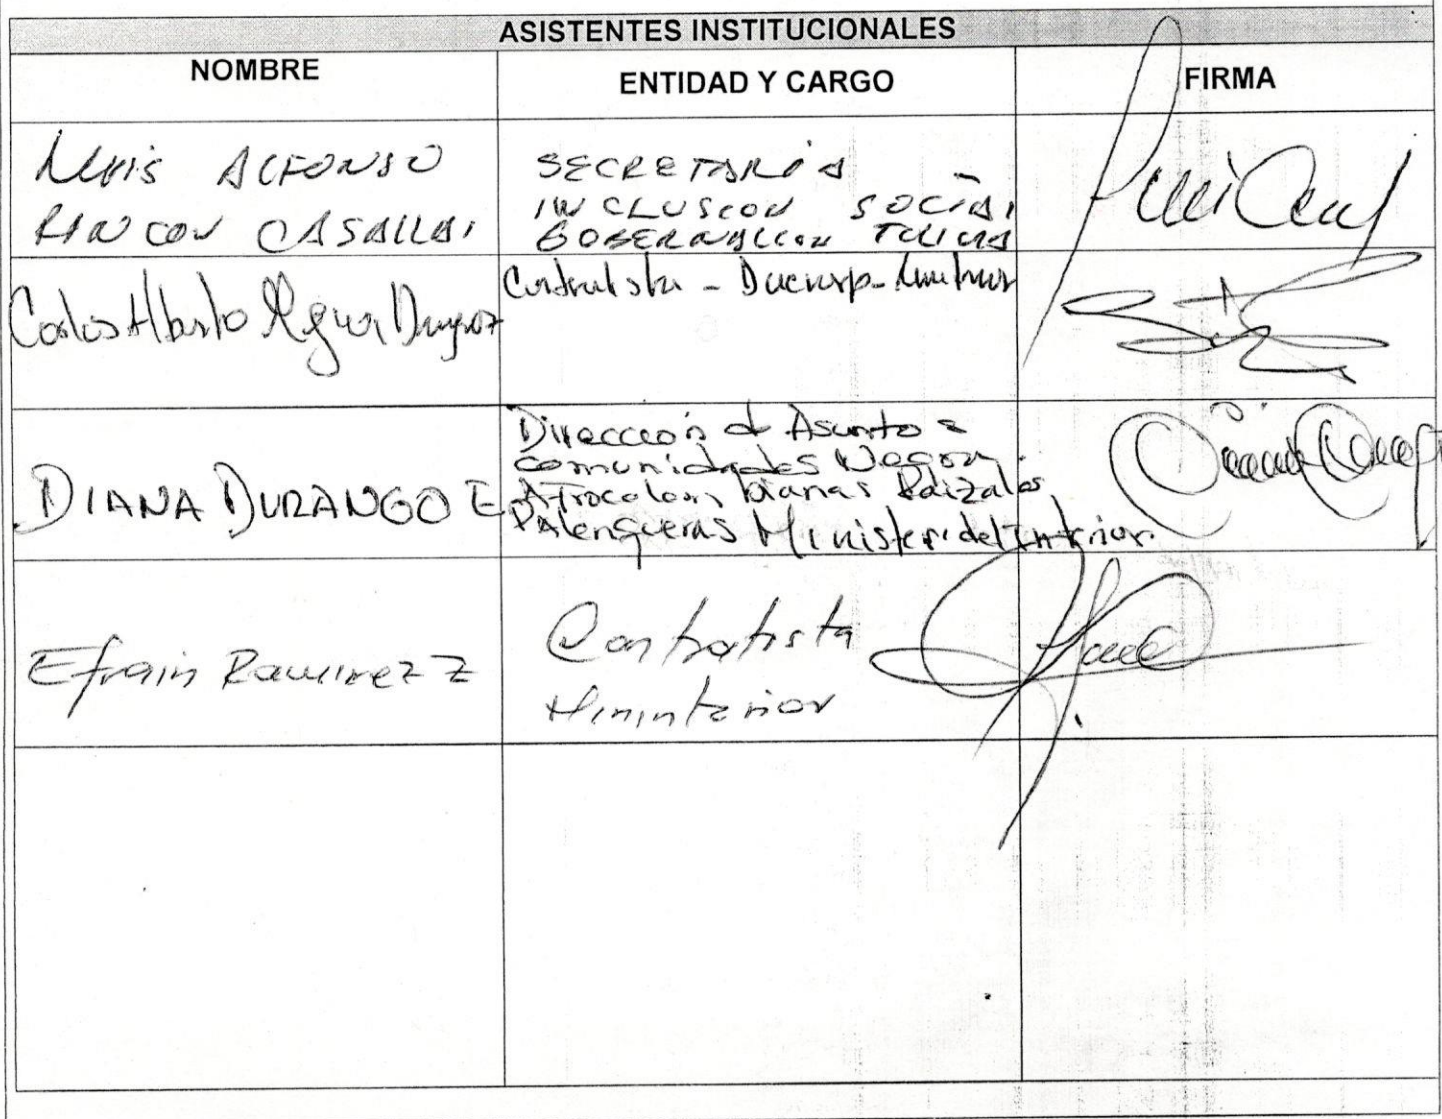 ASISTENTES INSTITUCIONALES
NOMBRE
ENTIDAD Y CARGO
FIRMA
Luis ALFONSO
RINCON CASALLAS
SECRETARÍA
INCLUSION SOCIAL
GOBERNACION TOLIMA
Carlos Alberto
Contratista -
DIANA DURANGO E
Dirección d Asuntos
comunidades Negras
Afrocolombianas Raizales
Palenqueras Ministeri del Interior
Efrain Ramirez Z
Contratista
Mininterior